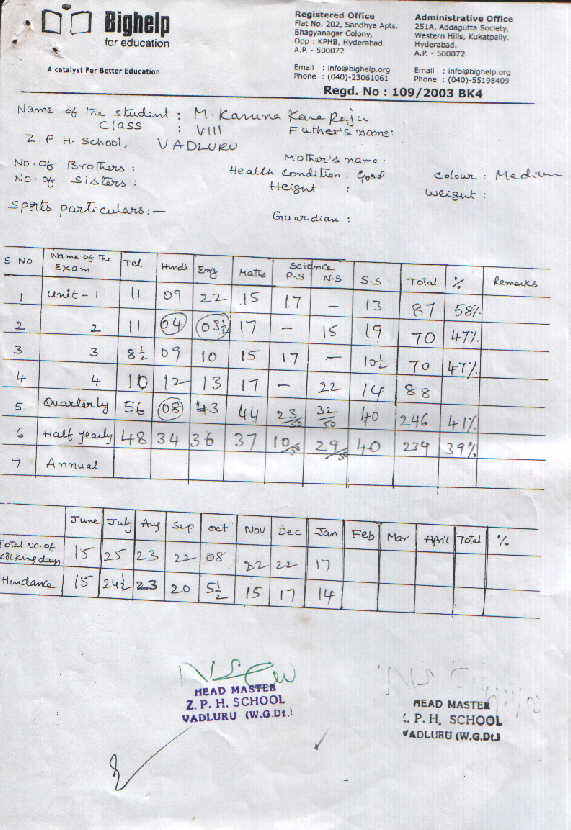 Bighelp
for education
A catalyst For Better Education
Registered Office
Flat No. 202, Sandhya Apts.
Bhagyanagar Colony,
Opp : KPHB, Hyderabad
A.P. - 500072
Email : info@bighelp.org
Phone : (040)-23061061
Administrative Office
251A, Addagutta Society,
Western Hills, Kukatpally,
Hyderabad.
A.P. - 500072
Email : info@bighelp.org
Phone : (040)-55198409
Regd. No : 109/2003 BK4
Name of the student : M. Karuna Kara Raju
Class : VIII Father's name:
Z. P. H. School, VADLURU
Mother's name :
No. of Brothers : Health Condition : Good Colour : Medium
No. of Sisters : Height : Weight :
Sports particulars :—
Guardian :
S No Name of the Exam Tel. Hindi Eng Maths Science P.S N.S S.S Total % Remarks
1 Unit - 1 11 09 22 15 17 - 13 87 58%
2 2 11 04 03½ 17 - 15 19 70 47%
3 3 8½ 09 10 15 17 - 10½ 70 47%
4 4 10 12 13 17 - 22 14 88
5 Quarterly 56 08 43 44 23/50 32/50 40 246 41%
6 Half yearly 48 34 36 37 10/50 29/50 40 234 39%
7 Annual
June July Aug Sep Oct Nov Dec Jan Feb Mar April Total %
Total no. of working days 15 25 23 22 08 22 22 17
Attendance 15 24½ 23 20 5½ 15 17 14
HEAD MASTER
Z. P. H. SCHOOL
VADLURU (W.G.Dt.)
HEAD MASTER
Z. P. H. SCHOOL
VADLURU (W.G.Dt.)